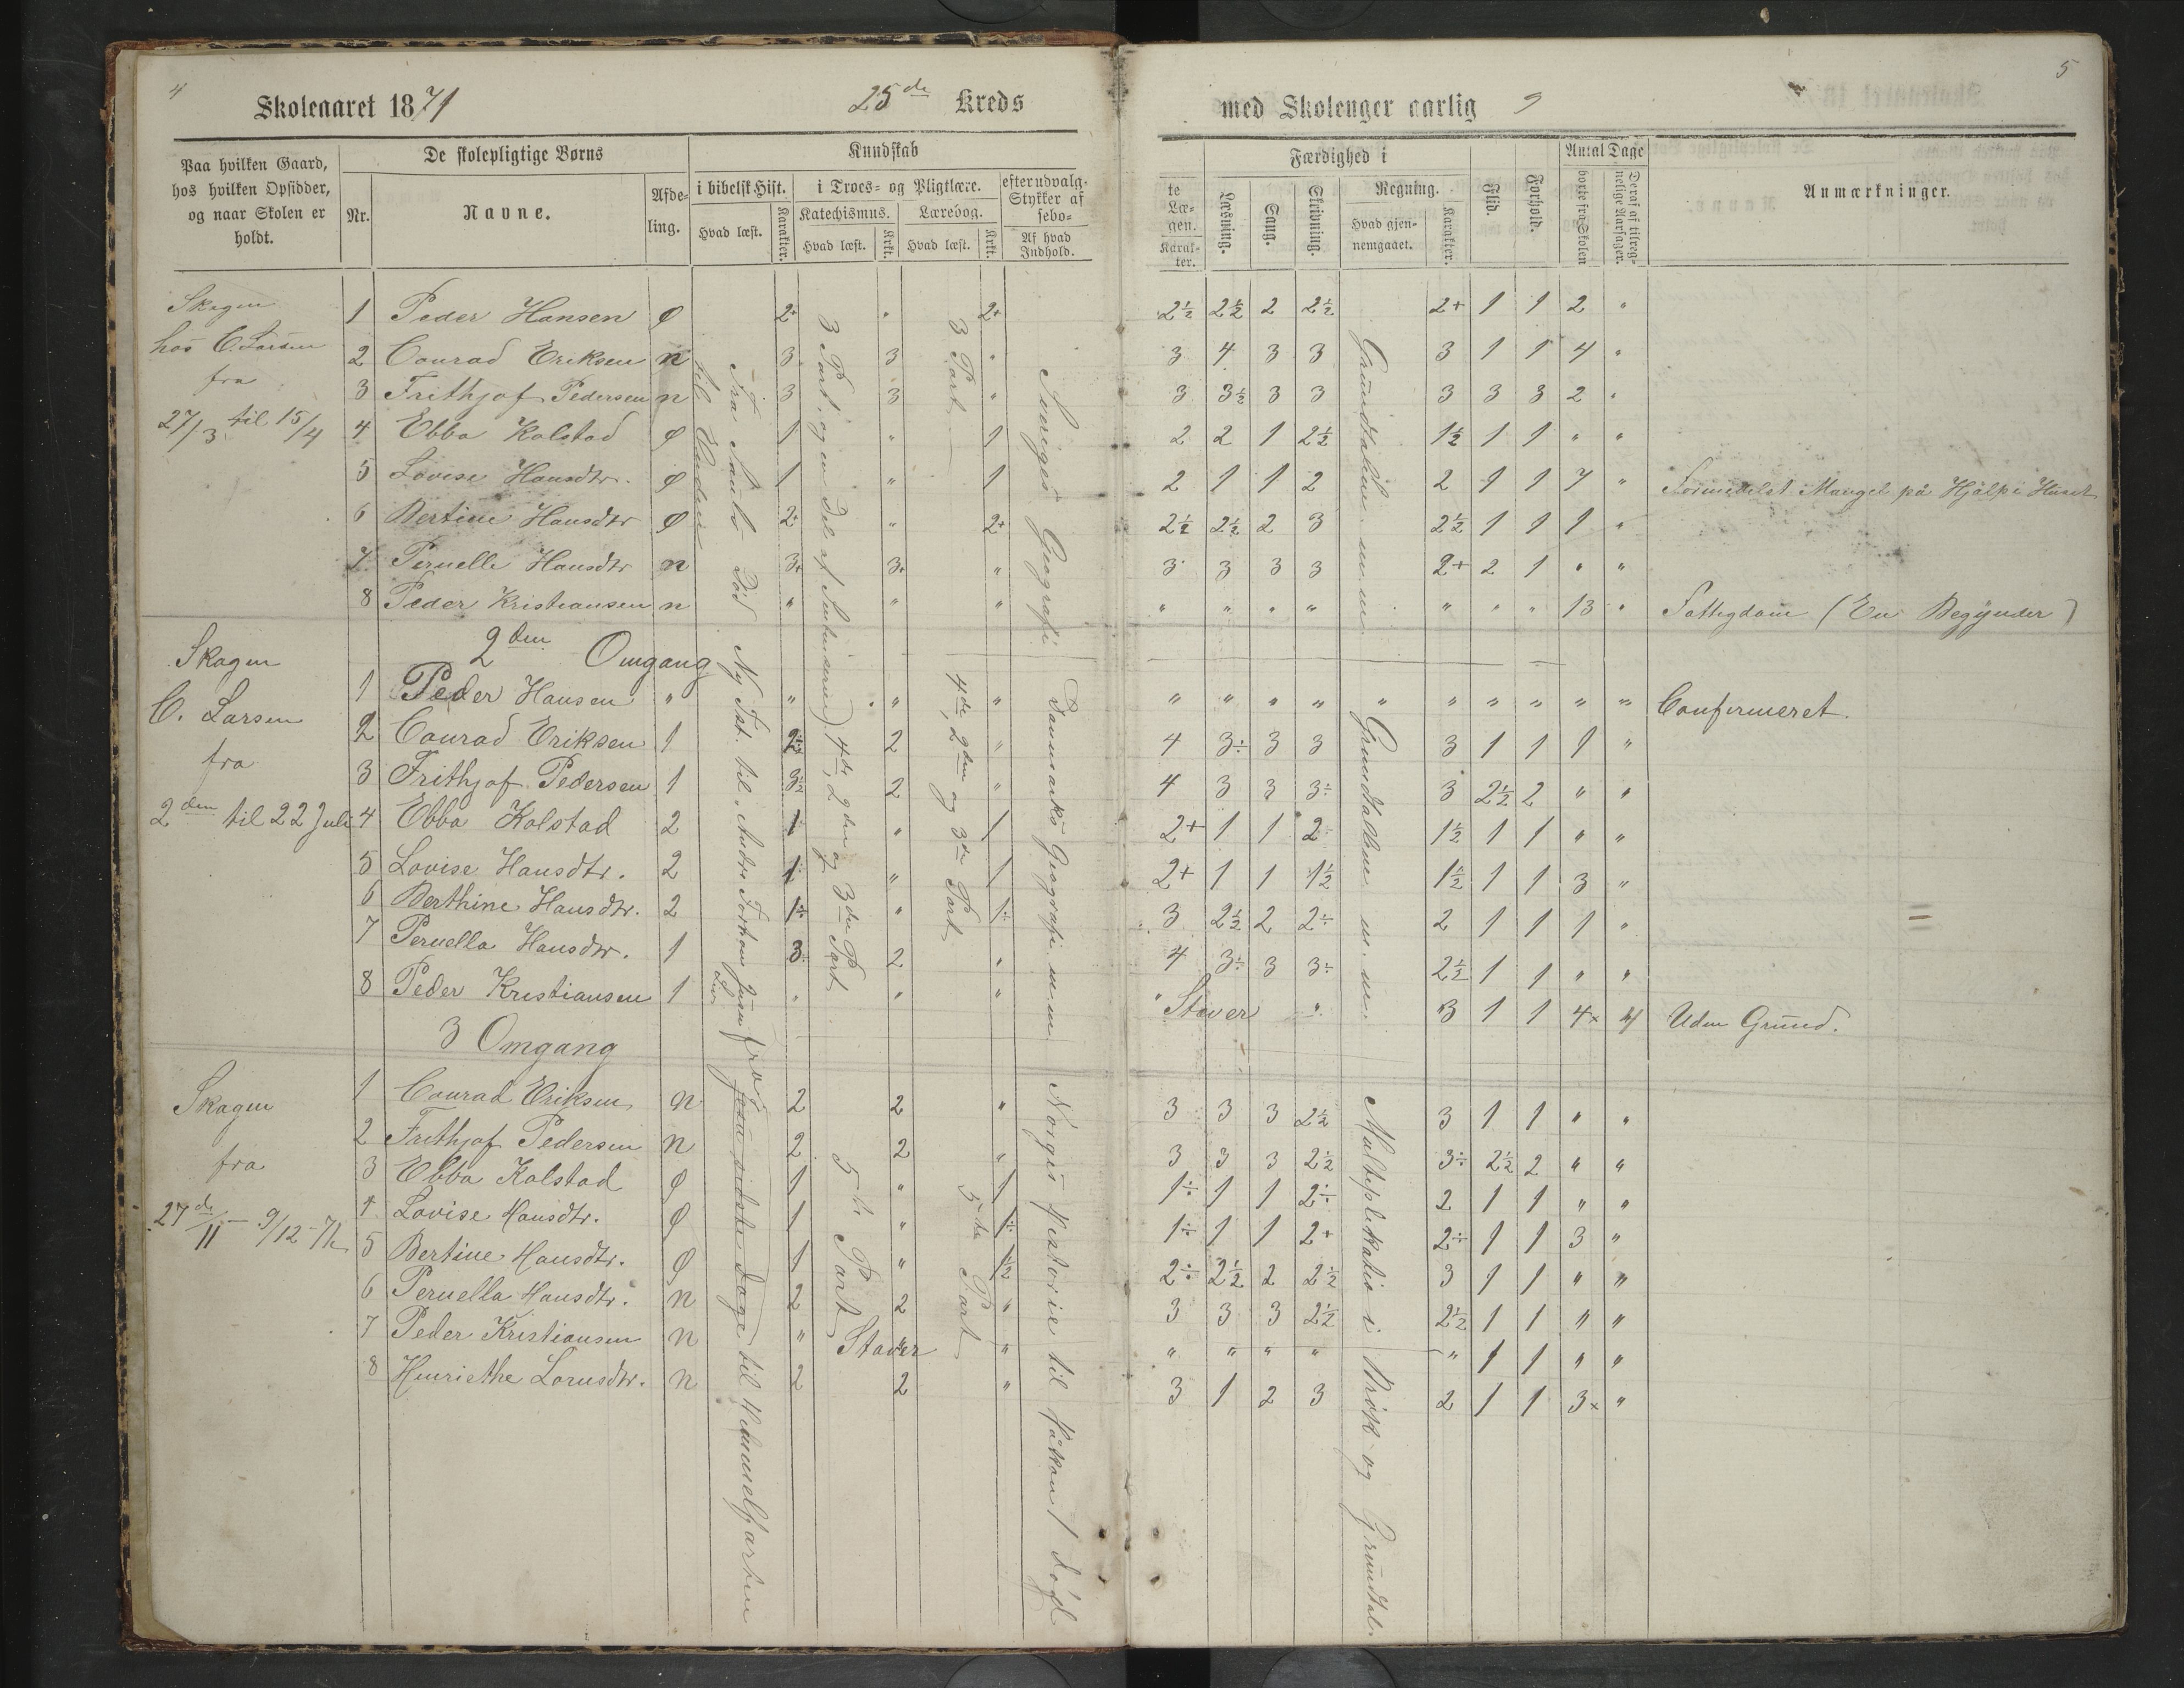 4
Skoleaaret 1871
25de Kreds
Paa hvilken Gaard, hos hvilken Opsidder, og naar Skolen er holdt.
De skolepligtige Børns
Nr.
Navne.
Afdeling.
Kundskab
i bibelsk Hist.
Hvad læst.
Karakter.
i Troes- og Pligtlære.
Katechismus.
Hvad læst.
Krkt.
Lærebog.
Hvad læst.
Krkt.
efter udvalg. Stykker af
Af hvad Indhold.
Skagen
hos C. Larsen
fra
27/3 til 15/4
1 Peder Hansen ø 2+ " 2+
2 Conrad Eriksen n 3 3 "
3 Frithjof Pedersen n 3 3 "
4 Ebba Kolstad ø 1 " 1
5 Lovise Hansdtr. ø 1 " 1
6 Bertine Hansdtr ø 2÷ " 2+
7 Pernelle Hansdtr n 3+ 3+ "
8 Peder Kristiansen n " " "
2den Omgang
Skagen
C. Larsen
fra
2den til 22 Juli
1 Peder Hansen " " " "
2 Conrad Eriksen 1 2÷ 2 "
3 Frithjof Pedersen 1 3½ 2 "
4 Ebba Kolstad 2 1 " 1
5 Lovise Hansdtr. 2 1 " 1
6 Berthine Hansdtr. 2 1÷ " 1÷
7 Pernella Hansdtr. 1 3 2 "
8 Peder Kristiansen 1 " " "
3 Omgang
Skagen
fra
27de/11 - 9/12 - 71
1 Conrad Eriksen n 2 2 "
2 Frithjof Pedersen n 2 2 "
3 Ebba Kolstad ø 1 " 1
4 Lovise Hansdtr. ø 1 " 1÷
5 Bertine Hansdtr. ø 1 " 1½
6 Pernella Hansdtr. n 2 2 "
7 Peder Kristiansen n " Staver " "
8 Henriethe Lornsdtr. n 2 2 "
Fra Sauls Død
til Enden
Ny Tst. til
fra Jesu sidste Dage til Himmelfarten
3 Part og en Del af
4de, 2den og 3die Part
5te Part
3 Part
4de, 2den og 3die Part
5te Part
Sveriges Geografi
Danmarks Geografi m.m.
Norges Historie til Håkon I død
5
med Skolenger aarlig 9
te Lægen.
Karakter.
Færdighed i
Læsning.
Sang.
Skrivning.
Regning.
Hvad gjennemgaaet.
Karakter.
Flid.
Forhold.
Antal Dage
borte fra Skolen
Deraf af tilregnelige Aarsager.
Anmærkninger.
2½ 2½ 2 2½ 2+ 1 1 2 "
3 4 3 3 3 1 1 4 "
3 3½ 3 3 3 3 3 2 "
2 2 1 2½ 1½ 1 1 " "
2 1 1 2 2 1 1 7 " Formedelst Mangel på Hjælp i Huset
2½ 2½ 2 3 2½ 1 1 1 "
3 3 3 3 2+ 2 1 " "
" " " " " " " 13 " Fattigdom (En Begynder)
" " " " " " " " " " Confirmeret.
4 3÷ 3 3 3 1 1 1 "
4 3 3 3÷ 3 2½ 2 " "
2+ 1 1 2 1½ 1 1 " "
2+ 1 1 1½ 1½ 1 1 3 "
3 2½ 2 2÷ 2 1 1 1 "
4 3÷ 3 3÷ 2½ 1 1 " "
" Staver " 3 1 1 4× 4 Uden Grund.
3 3 3 2½ 3 1 1 " "
3 3 3 2½ 3÷ 2½ 2 " "
1÷ 1 1 2÷ 2 1 1 " "
1÷ 1 1 2+ 2÷ 1 1 3 "
2÷ 2½ 2 2½ 3 1 1 " "
3 3 3 2½ 2½ 1 1 " "
" " " " " 1 1 " "
3 1 2 3 2 1 1 3× "
Grundtallene m.m.
Grundtallene m.m.
Multiplikation i Brøk og Grundtal.